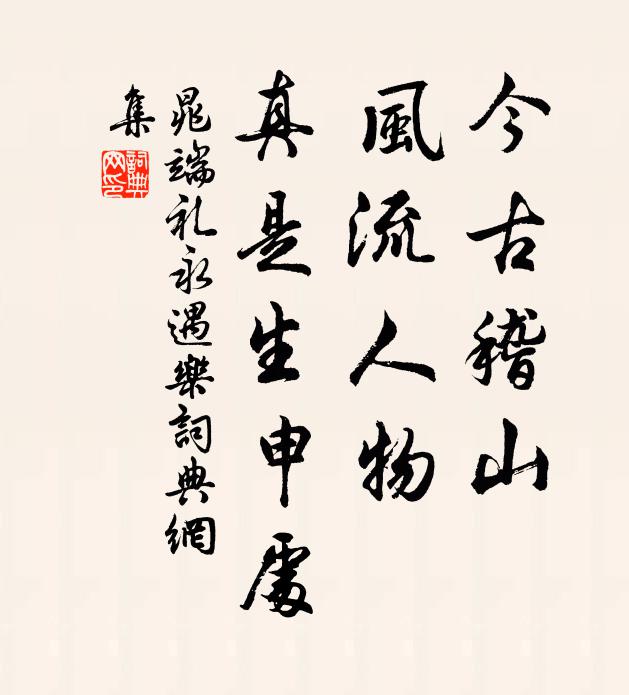 今古稽山
風流人物
真是生申處
晁端礼永遇樂詞典網
集
詞典
网印